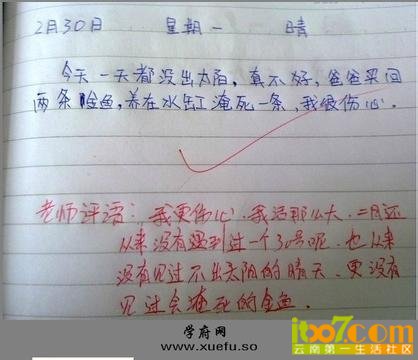 2月30日 星期一 晴
今天一天都没出太阳,真不好,爸爸买回
两条金鱼,养在水缸淹死一条,我很伤心.
老师评语:我更伤心.我活那么大.二月还
从来没有遇到过一个30号呢.也从来
没有见过不出太阳的晴天.更没有
见过会淹死的金鱼.
学府网
www.xuefu.so
itbo7.com
云南第一生活社区